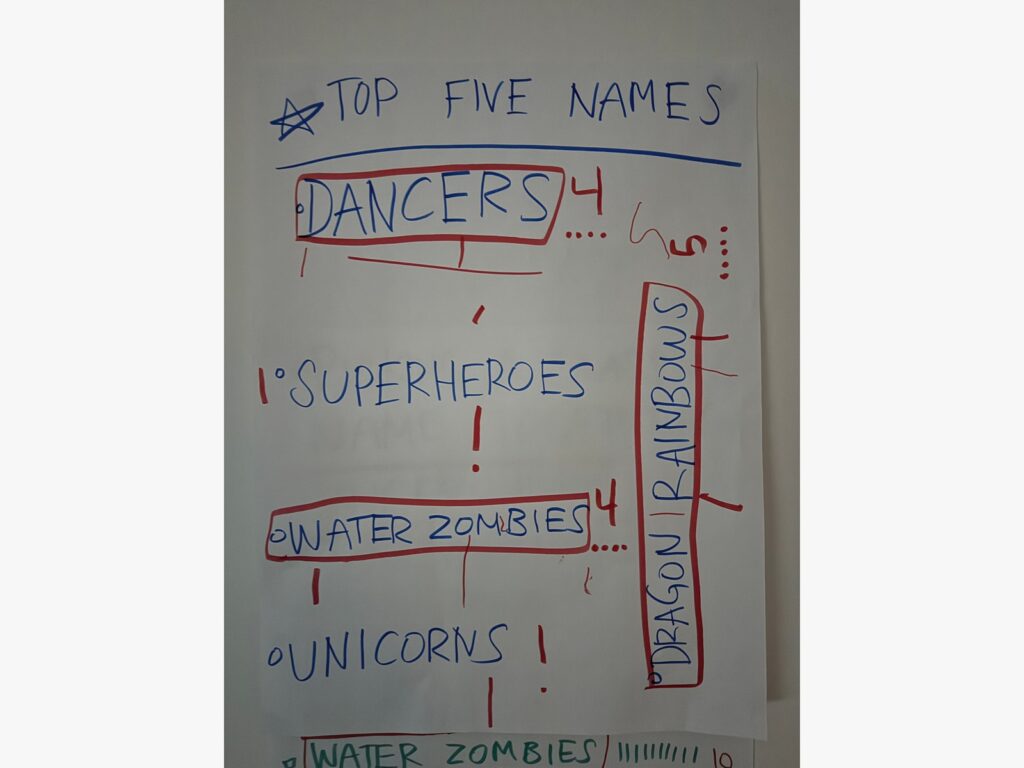 TOP FIVE NAMES
DANCERS 4
5
1 SUPERHEROES
WATER ZOMBIES 4
UNICORNS
DRAGON | RAINBOWS
WATER ZOMBIES |||||||||| 10